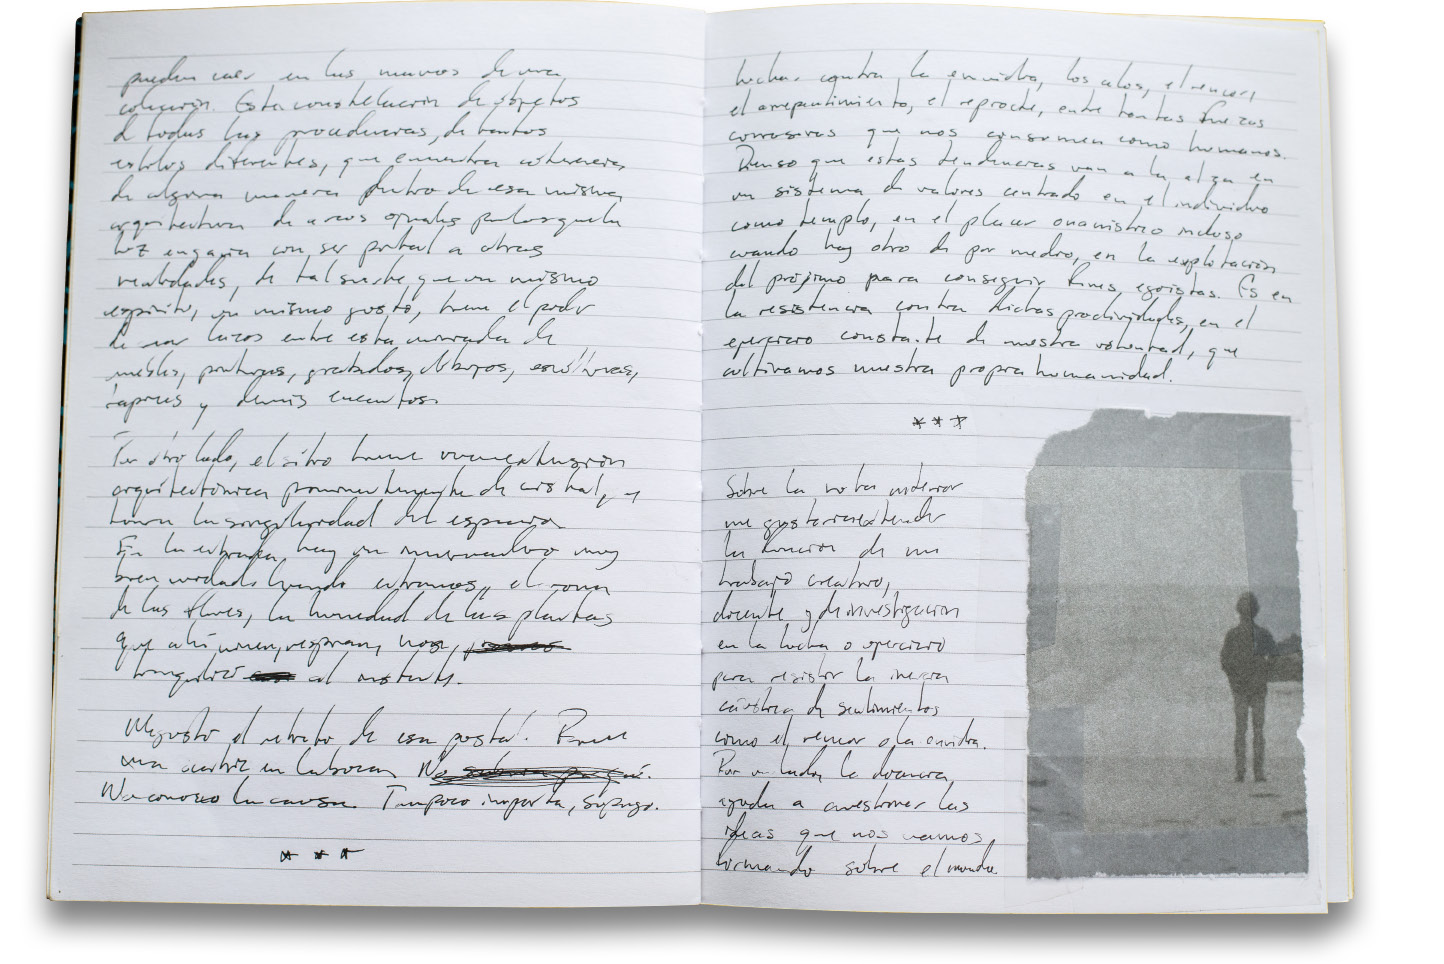 pueden caer en las manos de una
colección. Esta constelación de objetos
de todas las procedencias, de tantos
estilos diferentes, que encuentra coherencia
de alguna manera dentro de esa misma
arquitectura de arcos
luz engaña con ser portal a otras
realidades, de tal suerte que un mismo
espíritu, un mismo gusto, tiene el poder
de crear lazos entre esta de
muebles, pinturas, grabados, dibujos, esculturas,
tapices y demás encantos.
Por otro lado, el sitio tiene una extensión
arquitectónica de cristal, y
toma la singularidad del espacio
En la entrada, hay un invernadero muy
bien cuidado cuando entramos, el aroma
de las flores, la humedad de las plantas
que ahí viven, respiran, nos
tranquilizó al instante.
Me gustó el retrato de esa poeta. Tiene
una cicatriz en la boca. No
No conozco la causa. Tampoco importa, supongo.
* * *
luchar contra la envidia, los celos, el rencor,
el arrepentimiento, el reproche, entre tantas fuerzas
corrosivas que nos consumen como humanos.
Pienso que estas tendencias van a la alza en
un sistema de valores centrado en el individuo
como templo, en el placer onanístico incluso
cuando hay otro de por medio, en la explotación
del prójimo para conseguir fines egoístas. Es en
la resistencia contra dichas proclividades, en el
ejercicio constante de nuestra voluntad, que
cultivamos nuestra propia humanidad.
* * *
Sobre la nota anterior
me gustaría extender
la función de mi
trabajo creativo,
docente y de investigación
en la lucha o ejercicio
para resistir la inercia
caústica de sentimientos
como el rencor o la envidia.
Por un lado, la docencia,
ayuda a cuestionar las
ideas que nos vamos
formando sobre el mundo